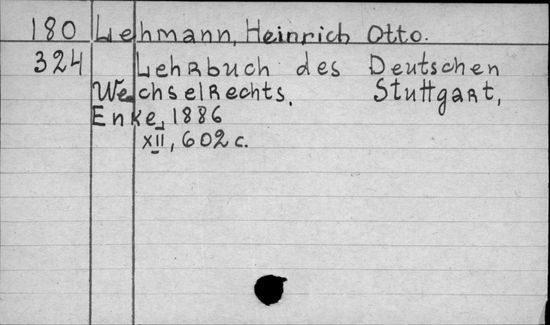 180 Lehmann, Heinrich Otto.
324 Lehrbuch des Deutschen
Wechselrechts. Stuttgart,
Enke, 1886
XII, 602 c.